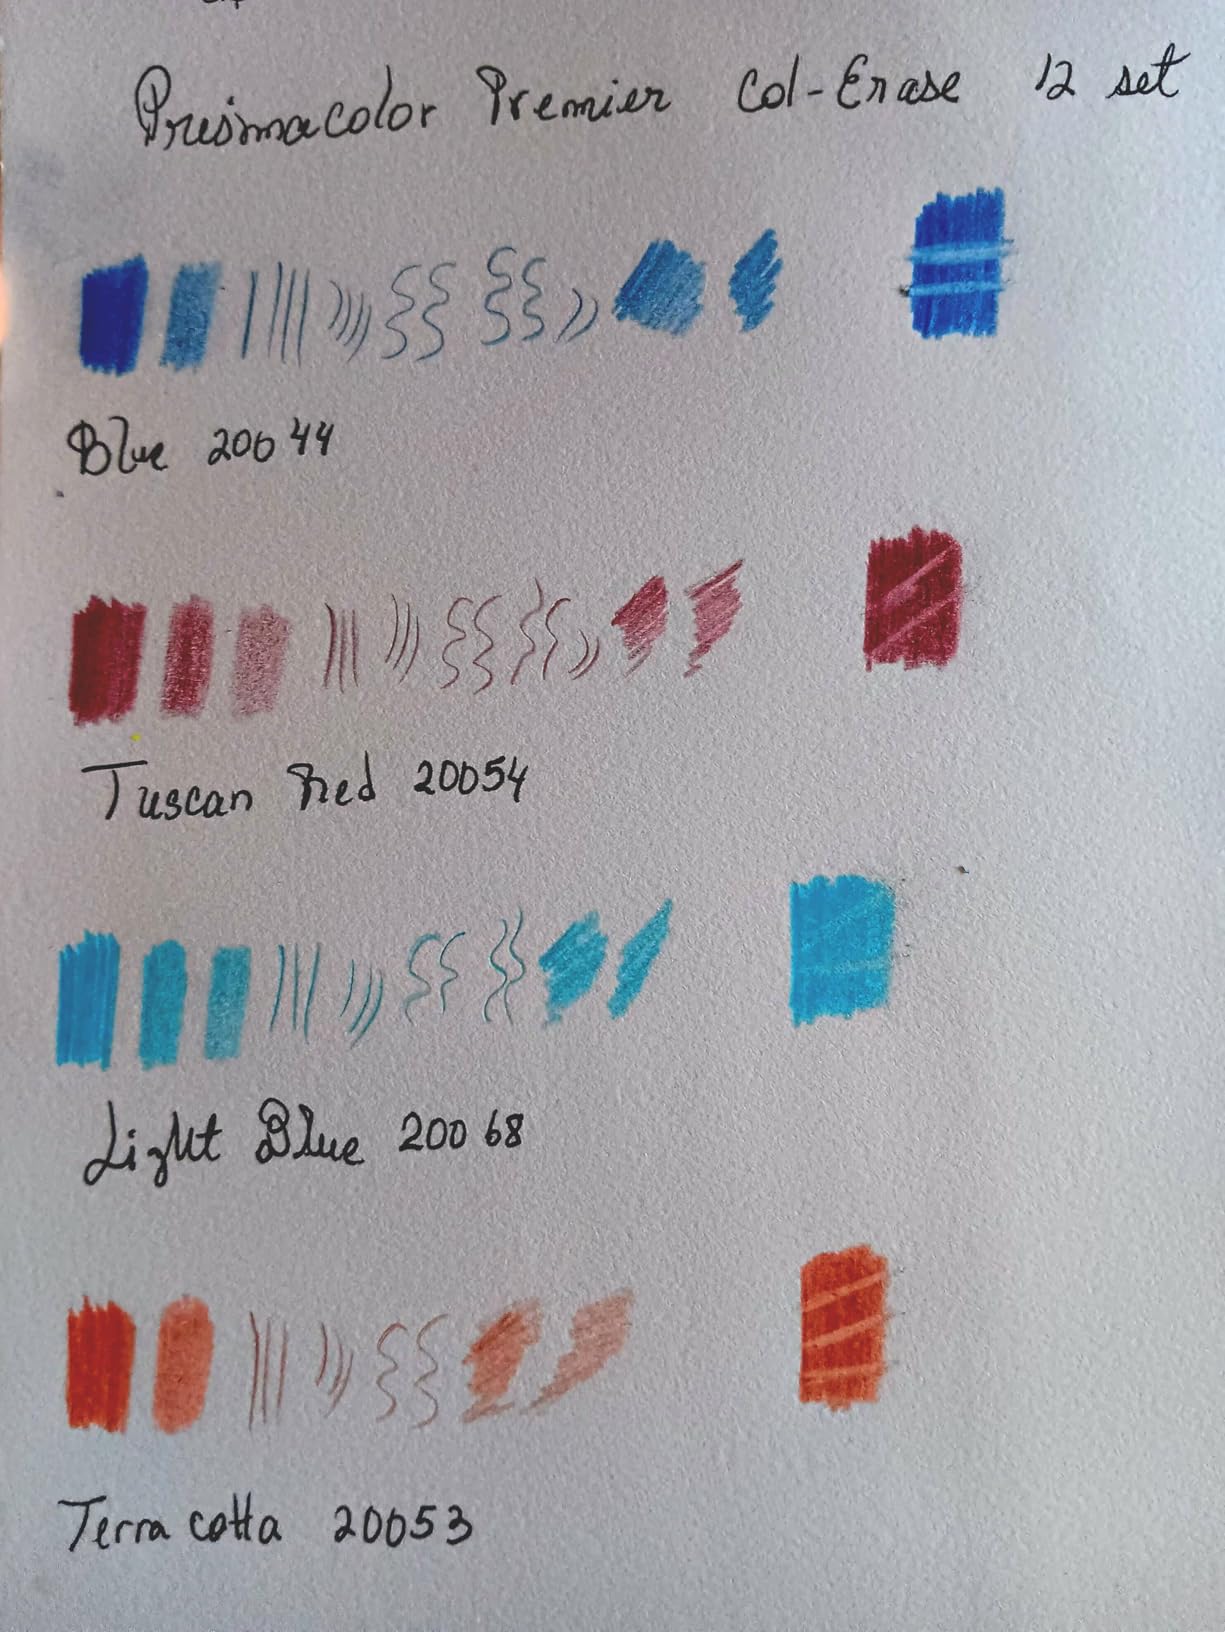 Prismacolor Premier Col-Erase 12 set
Blue 20044
Tuscan Red 20054
Light Blue 20068
Terra cotta 20053